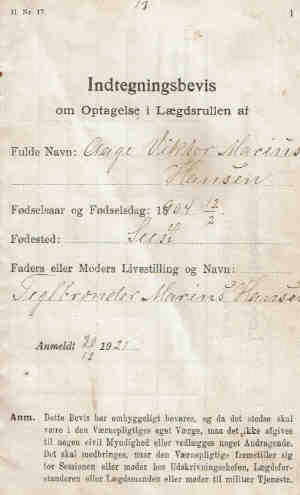 H. Nr. 17.
Indtegningsbevis
om Optagelse i Lægdsrullen af
Fulde Navn: Aage Viktor Marius
Hansen
Fødselsaar og Fødselsdag: 1904 12/2
Fødested: Seest
Faders eller Moders Livestilling og Navn:
Teglbrænder Marius Hansen
Anmeldt 20/12 1921
Anm. Dette Bevis bør omhyggeligt bevares, og da det stedse skal
være i den Værnepligtiges eget Værge, maa det ikke afgives
til nogen civil Myndighed eller vedlægges noget Andragende.
Det skal medbringes, naar den Værnepligtige fremstiller sig
for Sessionen eller møder hos Udskrivningschefen, Lægdsfor-
standeren eller Lægdsmanden eller møder til militær Tjeneste.